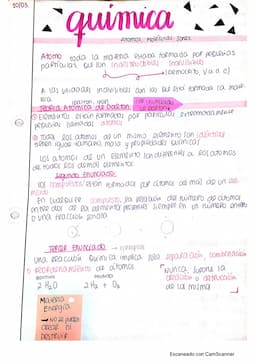 20/03
química
Átomos, moléculas, iones
Átomo: toda la materia estaba formada por pequeñas
partículas que eran indestructibles indivisibles
(Demócrito, V a. c)
A las unidades indivisibles con las que está formada la mate
ria
Teoría Atómica de Dalton
① Elementos están formados por partículas extremadamente
pequeñas llamadas átomos
② Todos los átomos de un mismo elemento son idénticos
tienen igual tamaño, masa y propiedades químicas
Los átomos de un elemento son diferentes a los átomos
de todos los demás elementos.
Segundo Enunciado:
los compuestos están formados por átomos de más de un ele-
mento
En cualquier compuesto, la relación del número de átomos
entre dos de los elementos presentes siempre es un número entero
o una fracción sencilla
Tercer Enunciado → ejemplos
Una reacción química implica solo separación, combinación
o reordenamiento de átomos.
Nunca supone la
creación o destrucción
de la misma
2 H₂O 2 H₂ + O₂
Materia
Energía
→ No se puede
crear ni
destruir
Escaneado con CamScanner